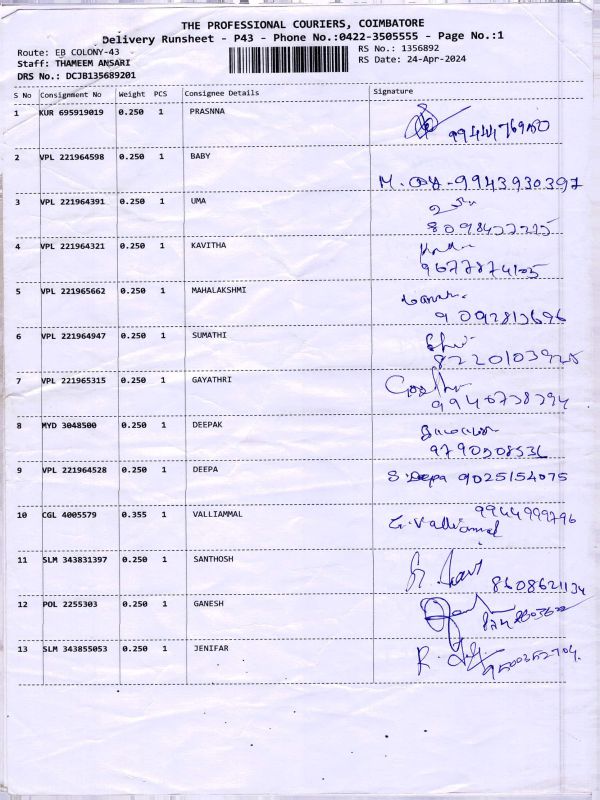 THE PROFESSIONAL COURIERS, COIMBATORE
Delivery Runsheet - P43 - Phone No.:0422-3505555 - Page No.:1
Route: EB COLONY-43
RS No.: 1356892
Staff: THAMEEM ANSARI
RS Date: 24-Apr-2024
DRS No.: DCJB135689201
S No Consignment No Weight PCS Consignee Details Signature
1 KUR 695919019 0.250 1 PRASNNA
2 VPL 221964598 0.250 1 BABY
9943930397
3 VPL 221964391 0.250 1 UMA
4 VPL 221964321 0.250 1 KAVITHA
9677874105
5 VPL 221965662 0.250 1 MAHALAKSHMI
9092813696
6 VPL 221964947 0.250 1 SUMATHI
7 VPL 221965315 0.250 1 GAYATHRI
8 MYD 3048500 0.250 1 DEEPAK
9790508536
9 VPL 221964528 0.250 1 DEEPA S. Deepa 9025154075
10 CGL 4005579 0.355 1 VALLIAMMAL 9944999796
G. Valliammal
11 SLM 343831397 0.250 1 SANTHOSH
8608621134
12 POL 2255303 0.250 1 GANESH
13 SLM 343855053 0.250 1 JENIFAR
9500352704